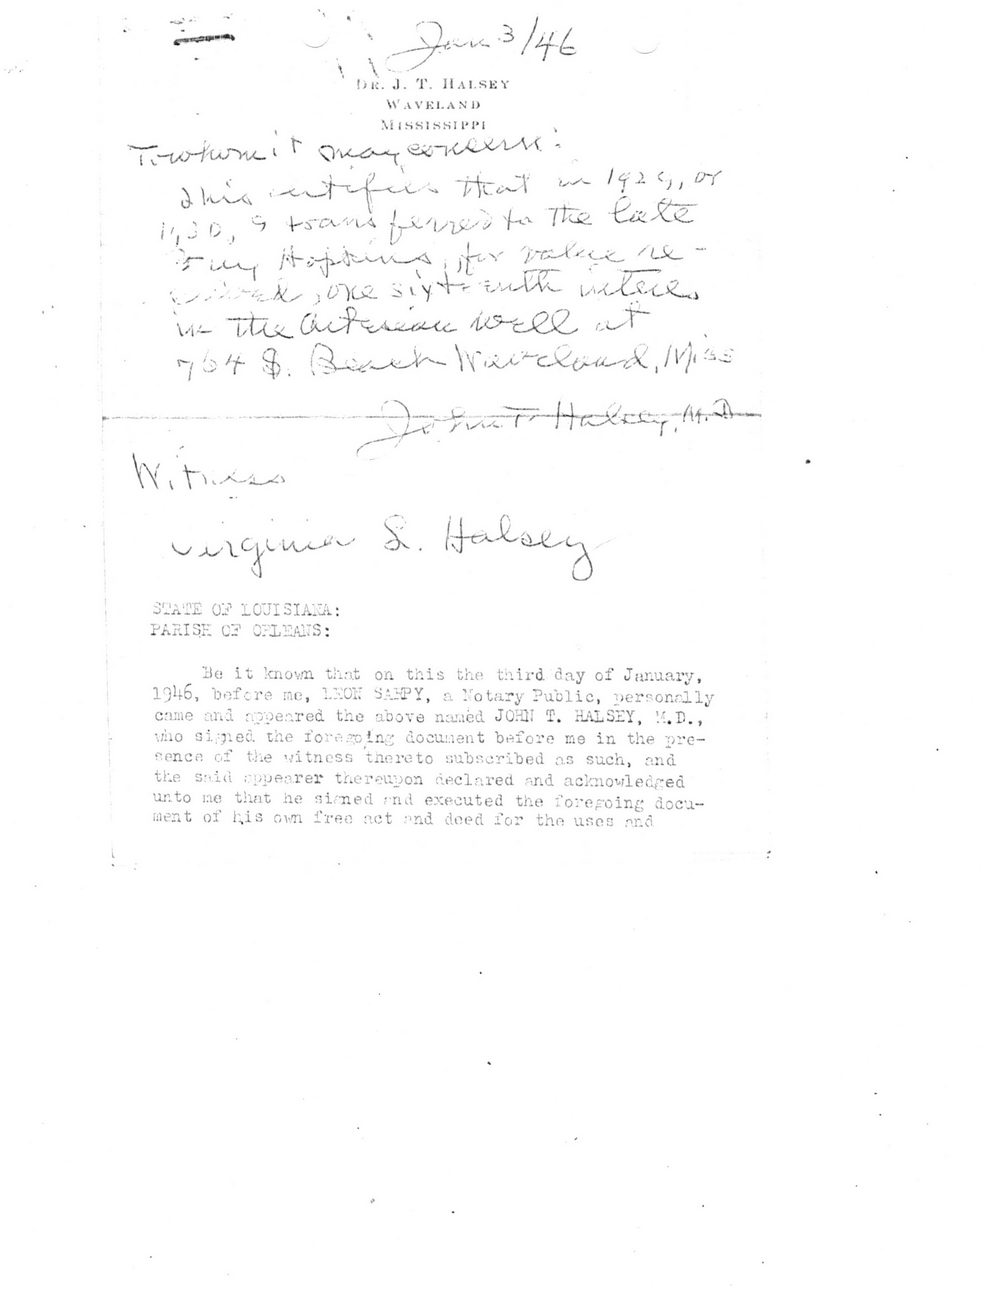 Jan 3/46
DR. J. T. HALSEY
WAVELAND
MISSISSIPPI
To whom it may concern:
This certifies that in 1929, or
1930, I transferred to the late
Hopkins, for value re-
ceived, one sixteenth interes
in the Artesian well at
764 S. Beach Waveland, Miss
John T. Halsey, M.D
Witness
Virginia S. Halsey
STATE OF LOUISIANA:
PARISH OF ORLEANS:
Be it known that on this the third day of January,
1946, before me, LEON SARPY, a Notary Public, personally
came and appeared the above named JOHN T. HALSEY, M.D.,
who signed the foregoing document before me in the pre-
sence of the witness thereto subscribed as such, and
the said appearer thereupon declared and acknowledged
unto me that he signed and executed the foregoing docu-
ment of his own free act and deed for the uses and